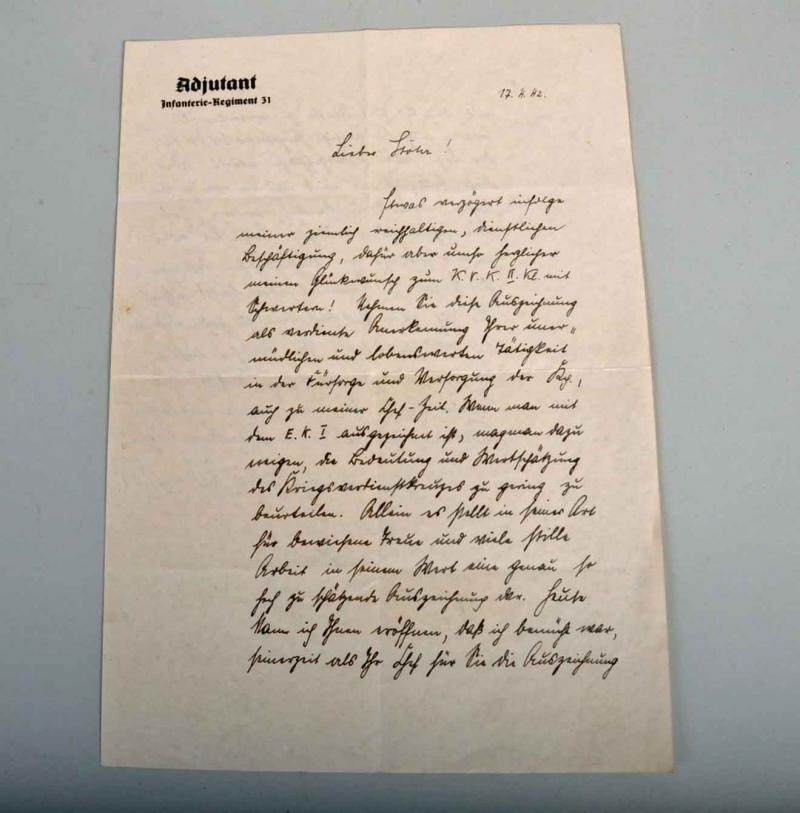 Adjutant
Infanterie-Regiment 31
17. 4. 42.
Lieber !
Etwas verzögert infolge
meiner ziemlich reichhaltigen, dienstlichen
Beschäftigung, dafür aber umso herzlicher
meinen Glückwunsch zum K. V. K. II. Kl. mit
Schwertern! Nehmen Sie diese Auszeichnung
als verdiente Anerkennung Ihrer uner-
müdlichen und lobenswerten Tätigkeit
in der Fürsorge und Versorgung der Kp.,
auch zu meiner Chef-Zeit. Wenn man mit
dem E. K. I ausgezeichnet ist, mag man dazu
neigen, die Bedeutung und Wertschätzung
des Kriegsverdienstkreuzes zu gering zu
beurteilen. Allein es stellt in seiner Art
für bewiesene Treue und viele stille
Arbeit in seinem Wert eine genau so
hoch zu schätzende Auszeichnung dar. Heute
kann ich Ihnen eröffnen, daß ich bemüht war,
seinerzeit als Ihr Chef für Sie die Auszeichnung